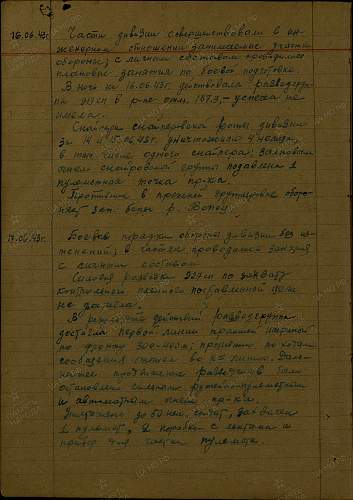 16.06.43г. Части дивизии совершенствовали в ин-
женерном отношении занимаемые участки
обороны; с личным составом проводились
плановые занятия по боевой подготовке.
В ночь на 16.06.43г. действовала разведгруп-
па в р-не отм. 187,9, - успеха не
имела.
Снайперы дивизии
за 14 и 15.06.43г. уничтожили 4 немца,
в том числе одного снайпера; залповым
огнем снайперской группы подавлена 1
пулеметная точка пр-ка.
Противник в прежней группировке оборо-
няет зап. берег р.
17.06.43г. Боевой порядок обороны дивизии без из-
менений; в частях проводились занятия
с личным составом.
Силовая разведка по захвату
контрольного пленного поставленной цели
не достигла.
В результате действий разведгруппа
достигла первой линии траншей шириной
по фронту
сообщения линии. Даль-
нейшее продвижение разведчиков было
остановлено сильным ружейно-пулеметным
и автоматным огнем пр-ка.
Уничтожено до 50 нем. солдат, захвачен
1 пулемет, 2 коробки с лентами и
прибор для пулемета.